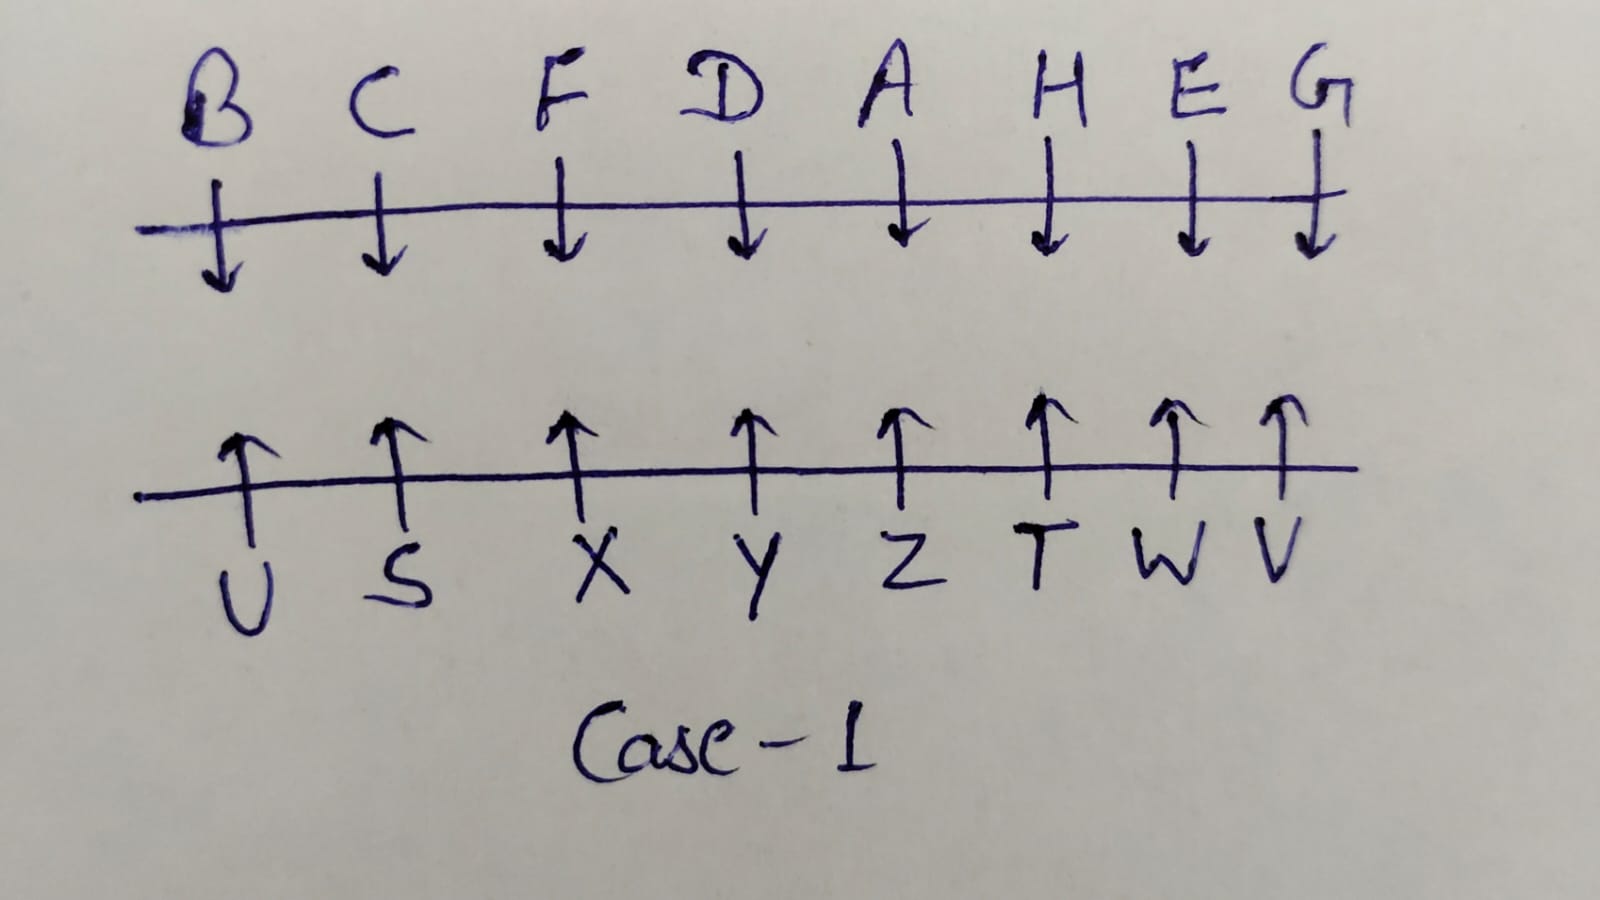 B C F D A H E G
U S X Y Z T W V
Case-1